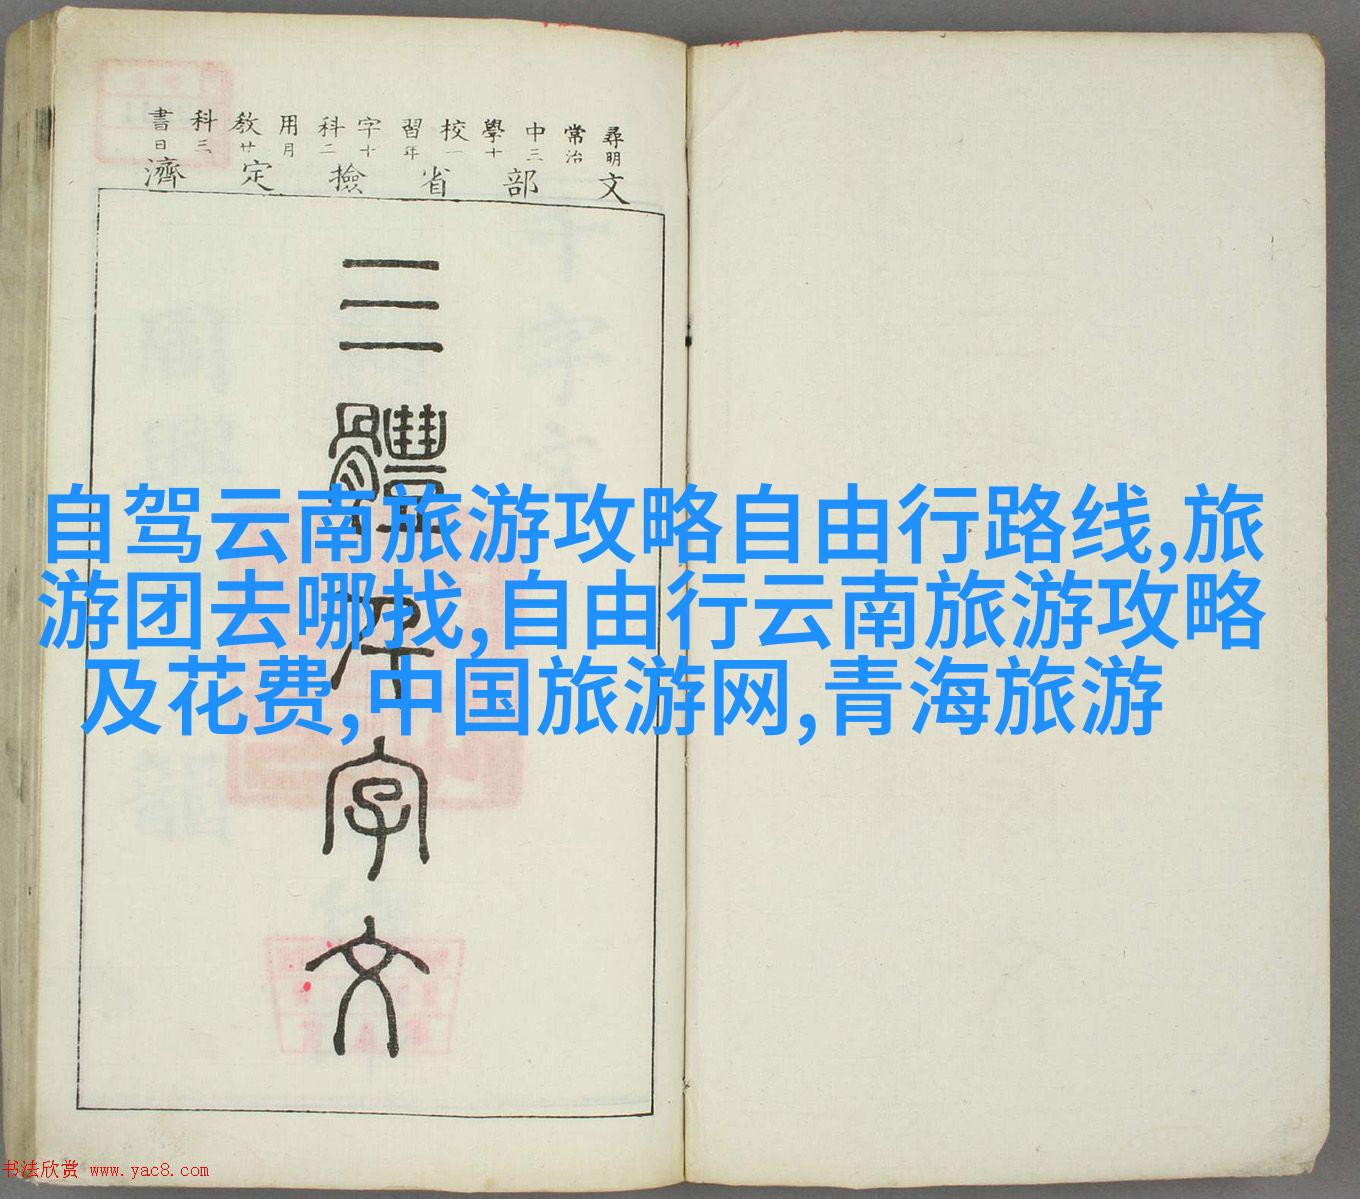 尋常中學校習字科用教科書
明治三十一年十二月廿三日
文部省撿定濟
三體千字文
自驾云南旅游攻略自由行路线,旅
游团去哪找,自由行云南旅游攻略
及花费,中国旅游网,青海旅游
书法欣赏 www.yac8.com